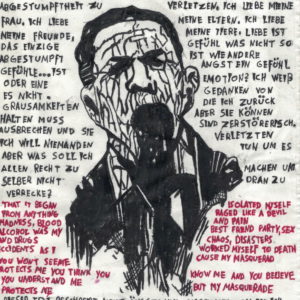 ABGESTUMPFTHEIT ZU VERLETZEN, ICH LIEBE MEINE
FRAU, ICH LIEBE MEINE ELTERN, ICH LIEBE
MEINE FREUNDE, MEINE TIERE, LIEBE IST
DAS EINZIGE GEFÜHL WAS NICHT SO
ABGESTUMPFT IST WIE ANDERE
GEFÜHLE...IST ANGST EIN GEFÜHL
ODER EINE EMOTION? ICH WEIß
ES NICHT. GEDANKEN VON
GRAUSAMKEITEN DIE ICH ZURÜCK
HALTEN MUSS ABER SIE KÖNNEN
AUSBRECHEN UND SIE SIND ZERSTÖRERISCH,
ICH WILL NIEMANDEN VERLETZTEN
ABER WAS SOLL ICH TUN UM ES
ALLEN RECHT ZU MACHEN UM
SELBER NICHT DRAN ZU
VERRECKE?
THAT IT BEGAN
FROM ANYTHING
MADNESS, BLOOD
ALCOHOL WAS MY
AND DRUGS
ACCIDENTS AS I
YOU WON'T SEE ME
PROTECTS ME YOU THINK YOU
YOU UNDERSTAND ME
PROTECTS ME
ISOLATED MYSELF
RAGED LIKE A DEVIL
AND PAIN
BEST FRIEND PARTY, SEX
CHAOS, DISASTERS,
WORKED MYSELF TO DEATH
CAUSE MY MASQUERAD
KNOW ME AND YOU BELIEVE
BUT MY MASQUERADE